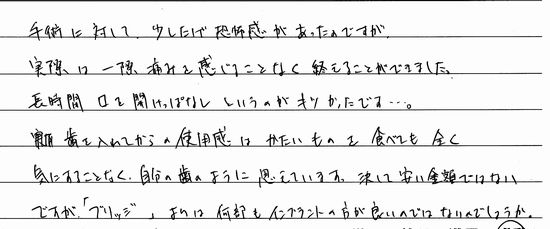 手術に対して、少しだけ恐怖感があったのですが、
実際は一際痛みを感じることなく終えることができました。
長時間口を開けっぱなしというのがキツかったです…。
歯を入れてからの使用感はかたいものを食べても全く
気にすることなく、自分の歯のように思えています。決して安い金額ではない
ですが、「ブリッジ」よりは何部もインプラントの方が良いのではないでしょうか。